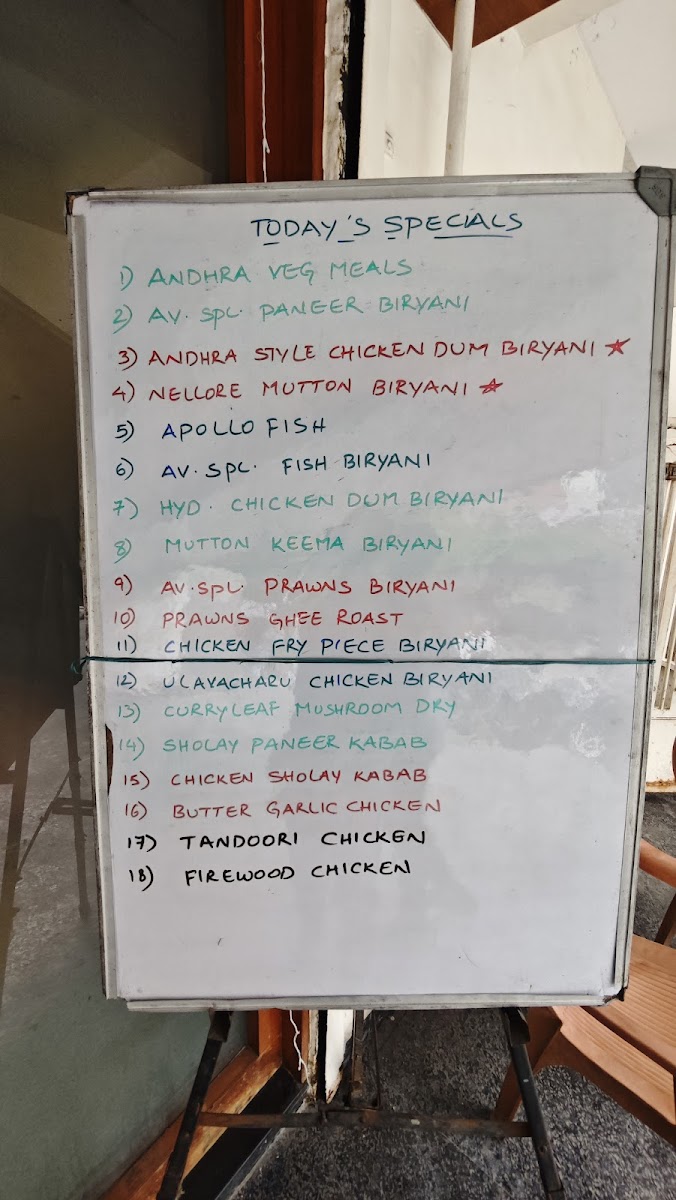 TODAY'S SPECIALS
1) ANDHRA VEG MEALS
2) AV. SPL. PANEER BIRYANI
3) ANDHRA STYLE CHICKEN DUM BIRYANI ★
4) NELLORE MUTTON BIRYANI ☆
5) APOLLO FISH
6) AV. SPL. FISH BIRYANI
7) HYD. CHICKEN DUM BIRYANI
8) MUTTON KEEMA BIRYANI
9) AV. SPL. PRAWNS BIRYANI
10) PRAWNS GHEE ROAST
11) CHICKEN FRY PIECE BIRYANI
12) ULAVACHARU CHICKEN BIRYANI
13) CURRYLEAF MUSHROOM DRY
14) SHOLAY PANEER KABAB
15) CHICKEN SHOLAY KABAB
16) BUTTER GARLIC CHICKEN
17) TANDOORI CHICKEN
18) FIREWOOD CHICKEN